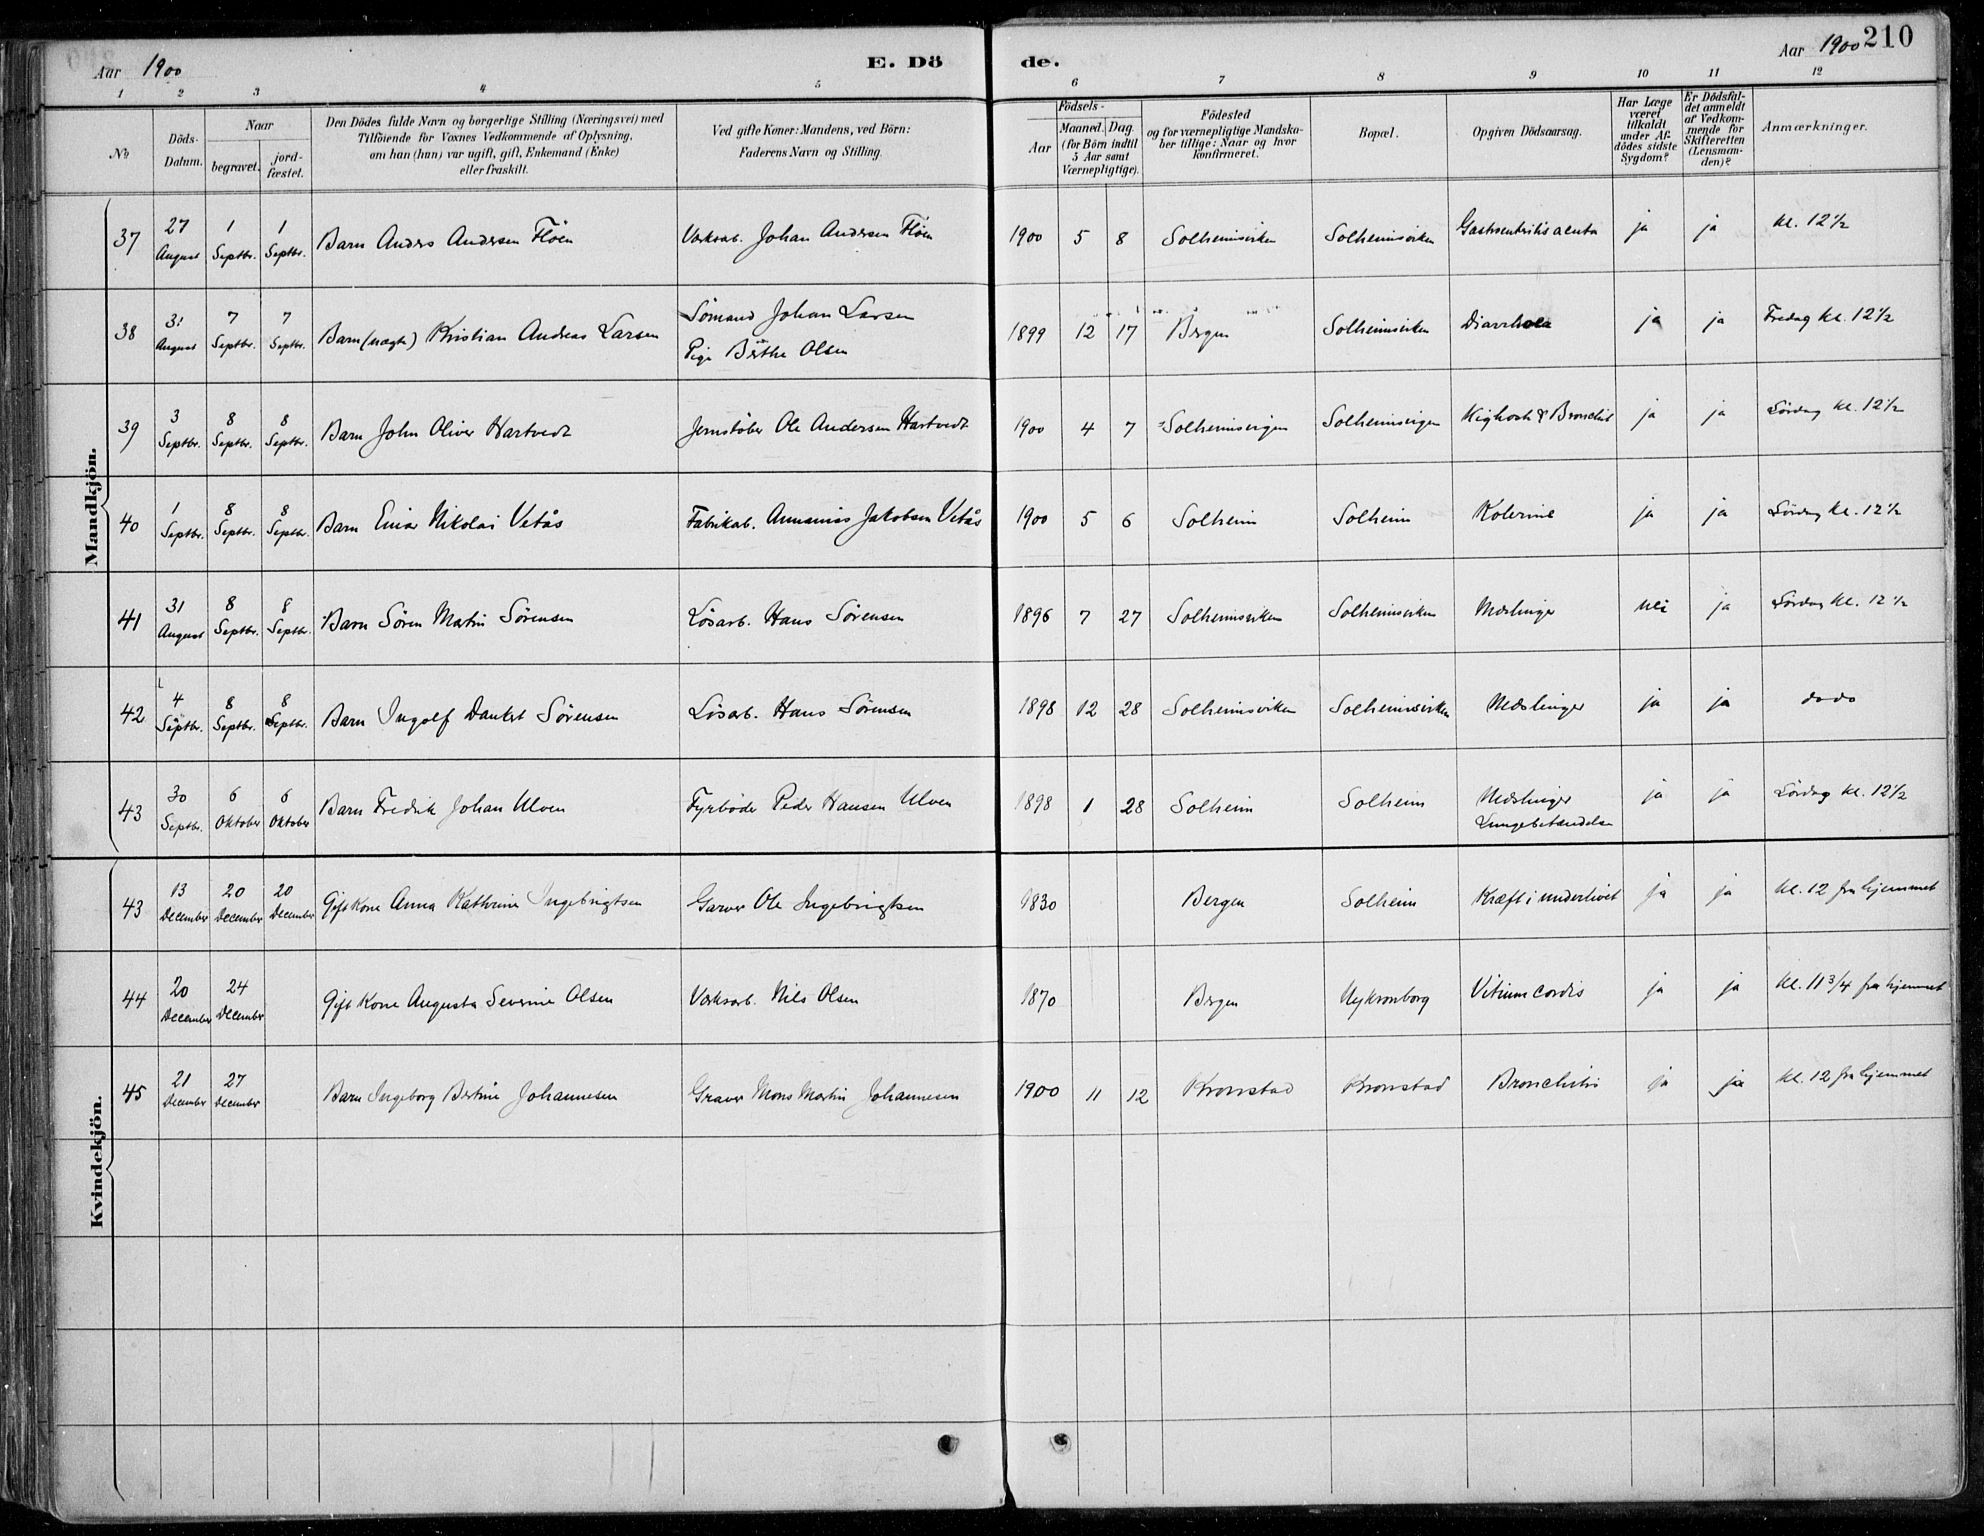 Aar 1900 E. Dö de. Aar 1900 210
1 2 3 4 5 6 7 8 9 10 11 12
No
Döds-Datum.
Naar
begravet.
jord-fæstet.
Den Dödes fulde Navn og borgerlige Stilling (Næringsvei) med
Tilföiende for Voxnes Vedkommende af Oplysning,
om han (hun) var ugift, gift, Enkemand (Enke)
eller fraskilt.
Ved gifte Koner: Mandens, ved Börn:
Faderens Navn og Stilling.
Födsels-
Aar
Maaned. Dag.
(for Börn indtil
5 Aar samt
Værnepligtige).
Födested
og for værnepligtige Mandska-
ber tillige: Naar og hvor
konfirmeret.
Bopæl.
Opgiven Dödsaarsag.
Har Læge
været
tilkaldt
under Af-
dödes sidste
Sygdom?
Er Dödsfal-
det anmeldt
af Vedkom-
mende for
Skifteretten
(Lensman-
den)?
Anmærkninger.
Mandkjön.
37 27 August 1 Septbr. 1 Septbr. Barn Anders Andersen Fløen Værksarb. Johan Andersen Fløen 1900 5 8 Solheimsviken Solheimsviken Gastroentritis acuta ja ja kl. 12 1/2
38 31 August 7 Septbr. 7 Septbr. Barn (uægte) Kristian Andreas Larsen Sømand Johan Larsen
Pige Berthe Olsen 1899 12 17 Bergen Solheimsviken Diarrhoea ja ja Fredag kl. 12 1/2
39 3 Septbr. 8 Septbr. 8 Septbr. Barn John Oliver Hartvedt Jernstøber Ole Andersen Hartvedt 1900 4 7 Solheimsvigen Solheimsvigen Kighoste & Bronchit ja ja Lördag kl. 12 1/2
40 1 Septbr. 8 Septbr. 8 Septbr. Barn Einar Nikolai Vetås Fabrikab. Annanias Jakobsen Vetås 1900 5 6 Solheim Solheim Kolerine ja ja Lördag kl. 12 1/2
41 31 August 8 Septbr. 8 Septbr. Barn Sören Martin Sörensen Lösarb. Hans Sörensen 1896 7 27 Solheimsviken Solheimsviken Meslinger nei ja Lördag kl. 12 1/2
42 4 Septbr. 8 Septbr. 8 Septbr. Barn Ingolf Dankert Sörensen Lösarb. Hans Sörensen 1898 12 28 Solheimsviken Solheimsviken Meslinger ja ja dodo
43 30 Septbr. 6 Oktober 6 Oktober Barn Fredrik Johan Ulven Fyrböder Peder Hansen Ulven 1898 1 28 Solheim Solheim Meslinger
Lungebetændelse ja ja Lördag kl. 12 1/2
Kvindekjön.
43 13 December 20 December 20 December Gift Kone Anna Kathrine Ingebrigtsen Garver Ole Ingebrigtsen 1830 Bergen Solheim Kræft i underlivet ja ja kl. 12 fra hjemmet
44 20 December 24 December Gift Kone Augusta Severine Olsen Værksarb. Nils Olsen 1870 Bergen Nykronborg Vitium cordis ja ja kl. 11 3/4 fra hjemmet
45 21 December 27 December Barn Ingeborg Bertine Johannesen Graver Mons Martin Johannesen 1900 11 12 Kronstad Kronstad Bronchitis ja ja kl. 12 fra hjemmet